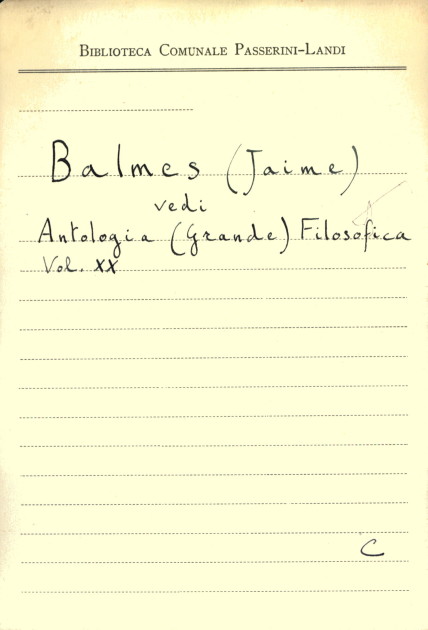 Biblioteca Comunale Passerini-Landi
Balmes (Jaime)
vedi
Antologia (Grande) Filosofica
Vol. XX
C